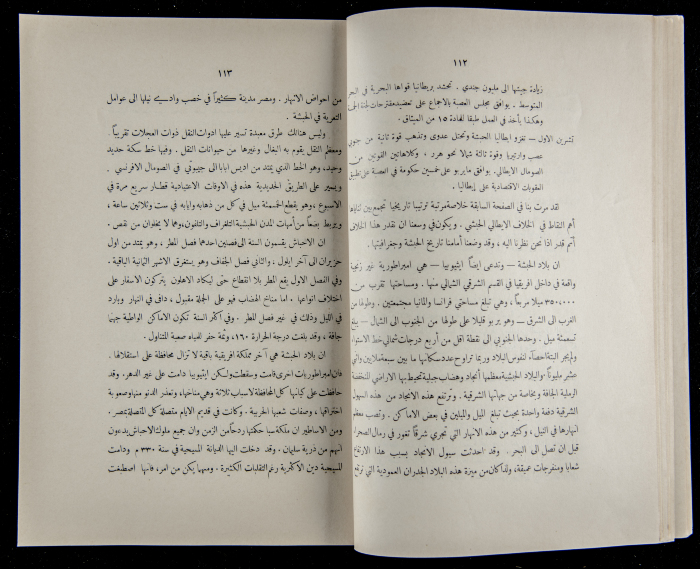 ١١٢
زيادة جيشها الى مليون جندي . تحشد بريطانيا قواها البحرية في البحر
المتوسط . يوافق مجلس العصبة بالاجماع على تعضيد مقترحات لجنة
وهكذا يأخذ في العمل طبقا للمادة ١٥ من الميثاق .
تشرين الاول — تغزو ايطاليا الحبشة وتحتل عدوى وتذهب قوة ثانية من جنوبي
عصب وارتيريا وقوة ثالثة شمالا نحو هرر ، وكلاهاتين القوتين من
الصومال الايطالي . يوافق ما يربو على خمسين حكومة في العصبة على تطبيق
العقوبات الاقتصادية على ايطاليا .
لقد مرت بنا في الصفحة السابقة خلاصة مرتبة ترتيبا تاريخيا تجمع بين ثناياها
أهم النقاط في الخلاف الايطالي الحبشي . ويكون في وسعنا ان نقدر هذا الخلاف
أتم قدر اذا نحن نظرنا اليه ، وقد وضعنا أمامنا تاريخ الحبشة وجغرافيتها .
ان بلاد الحبشة — وتدعى ايضاً ايثيوبيا — هي امبراطورية غير زنجية
واقعة في داخل افريقيا في القسم الشرقي الشمالي منها . ومساحتها تقرب من
٣٥٠,٠٠٠ ميلا مربعاً ، وهي تبلغ مساحتي فرانسا والمانيا مجتمعتين . وطولها من
الغرب الى الشرق — وهو يربو قليلا على طولها من الجنوب الى الشمال — يبلغ
تسعمئة ميل . وحدها الجنوبي الى نقطة اقل من أربع درجات شمالي خط الاستواء
ولم يجر البتة احصاء لنفوس البلاد وربما تراوح عدد سكانها ما بين سبعة ملايين واثني
عشر مليوناً . والبلاد الحبشية معظمها أنجاد وهضاب جبلية تحيط بها الاراضي المنخفضة
الرملية الجافة وبخاصة من جهاتها الشرقية . وترتفع هذه الانجاد من هذه السهول
الشرقية دفعة واحدة بحيث تبلغ الميل والميلين في بعض الاماكن . وتصب معظم
انهارها في النيل ، وكثير من هذه الانهار التي تجري شرقاً تغور في رمال الصحراء
قبل ان تصل الى البحر . وقد احدثت سيول الانجاد بسبب هذا الارتفاع
شعابا ومنفرجات عميقة ، ولذا كان من ميزة هذه البلاد الجدران العمودية التي ترتفع
١١٣
من احواض الانهار . ومصر مدينة كثيراً في خصب وادي نيلها الى عوامل
التعرية في الحبشة .
وليس هنالك طرق معبدة تسير عليها ادوات النقل ذوات العجلات تقريباً .
ومعظم النقل يقوم به البغال وغيرها من حيوانات النقل . وفيها خط سكة حديد
وحيد، وهو الخط الذي يمتد من اديس ابابا الى جيبوتي في الصومال الافرنسي .
ويسير على الطريق الحديدية هذه في الاوقات الاعتيادية قطار سريع مرة في
الاسبوع ، وهو يقطع الخمسمئة ميل في كل من ذهابه وايابه في ست وثلاثين ساعة ،
ويربط بضعاً من أمهات المدن الحبشية التلغراف والتلفون، وهما لا يخلوان من نقص .
ان الاحباش يقسمون السنة الى فصلين احدهما فصل المطر ، وهو يمتد من اول
حزيران الى آخر ايلول ، والثاني فصل الجفاف وهو يستغرق الاشهر الثمانية الباقية .
وفي الفصل الاول يقع المطر بلا انقطاع حتى ليكاد الاهلون يتركون الاسفار على
اختلاف انواعها . اما مناخ الهضاب فهو على الجملة مقبول ، دافئ في النهار وبارد
في الليل وذلك في غير فصل المطر . وفي اكثر السنة تكون الاماكن الواطئة جهنما
جافة ، وقد بلغت درجة الحرارة ١٦٠، وثمة حفر للمياه صعبة المتناول .
ان بلاد الحبشة هي آخر مملكة افريقية باقية لا تزال محافظة على استقلالها .
فان امبراطوريات اخرى قامت وسقطت ولكن ايثيوبيا دامت على غير الدهر، وقد
حافظت على كيانها كل المحافظة لاسباب ثلاثة وهي مناخها، وتعذر الدنو منها وصعوبة
اختراقها ، وصفات شعبها الحربية . وكانت في قديم الايام متصلة كل المتصلة بمصر .
ومن الاساطير ان ملكة سبا حكمتها ردحاً من الزمن وان جميع ملوك الاحباش يدعون
انهم من ذرية سليمان . وقد دخلت اليها الديانة المسيحية في سنة ٣٣٠ م ودامت
المسيحية دين الاكثرية رغم التقلبات الكثيرة . ومهما يكن من امر، فانها اصطبغت